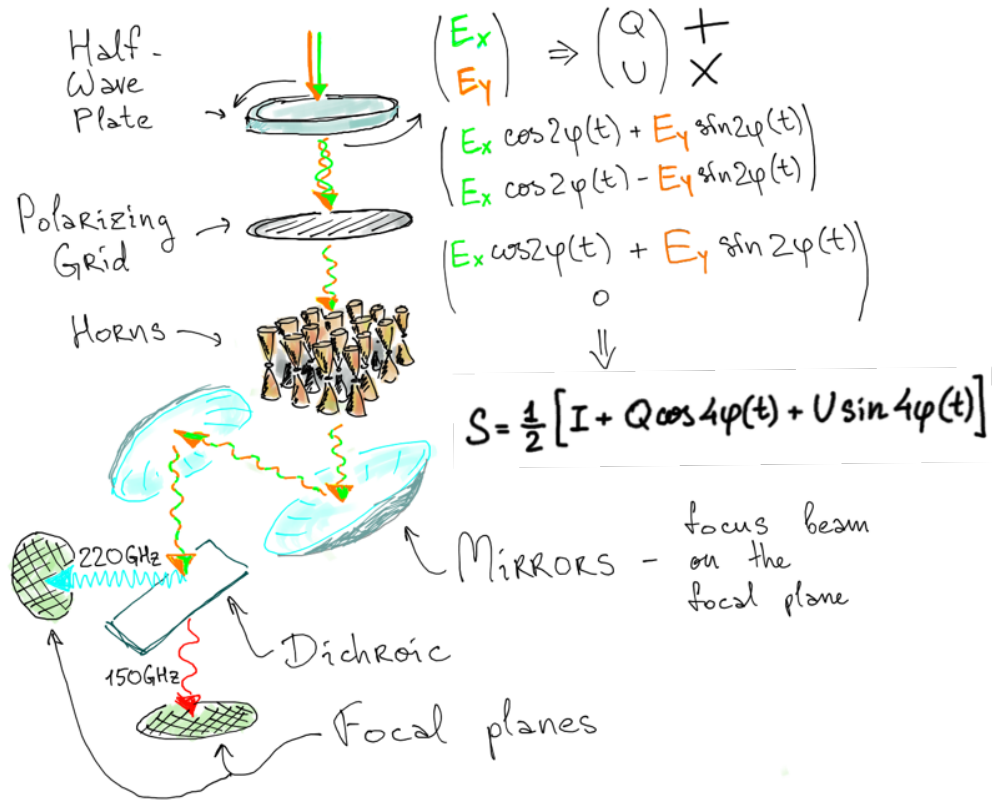 Half-
Wave
Plate
(Ex
Ey) ⇒ (Q
U) + ×
(Ex cos2φ(t) + Ey sin2φ(t)
Ex cos2φ(t) - Ey sin2φ(t))
Polarizing
Grid
(Ex cos2φ(t) + Ey sin2φ(t)
0)
⇓
Horns
S = 1/2 [I + Q cos 4φ(t) + U sin 4φ(t)]
Mirrors - focus beam
on the
focal plane
220GHz
Dichroic
150GHz
Focal planes